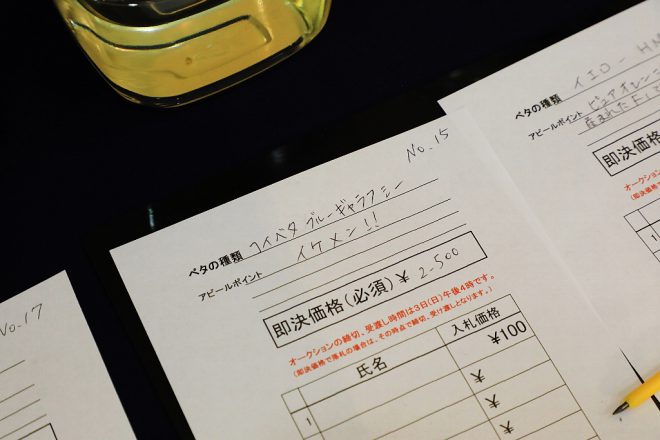 No.15
ベタの種類 コイベタ ブルーギャラクシー
アピールポイント イケメン!!
即決価格(必須)¥ 2-500
オークションの締切、受渡し時間は3日(日)午後4時です。
(即決価格で落札の場合は、その時点で締切、受け渡しとなります。)
氏名 入札価格
1 ¥100
¥
¥
¥
No.17
ベタの種類 イエロー HM
アピールポイント ピュアオレンジ
産まれたF1で
即決価格
オークション
(即決価格
1